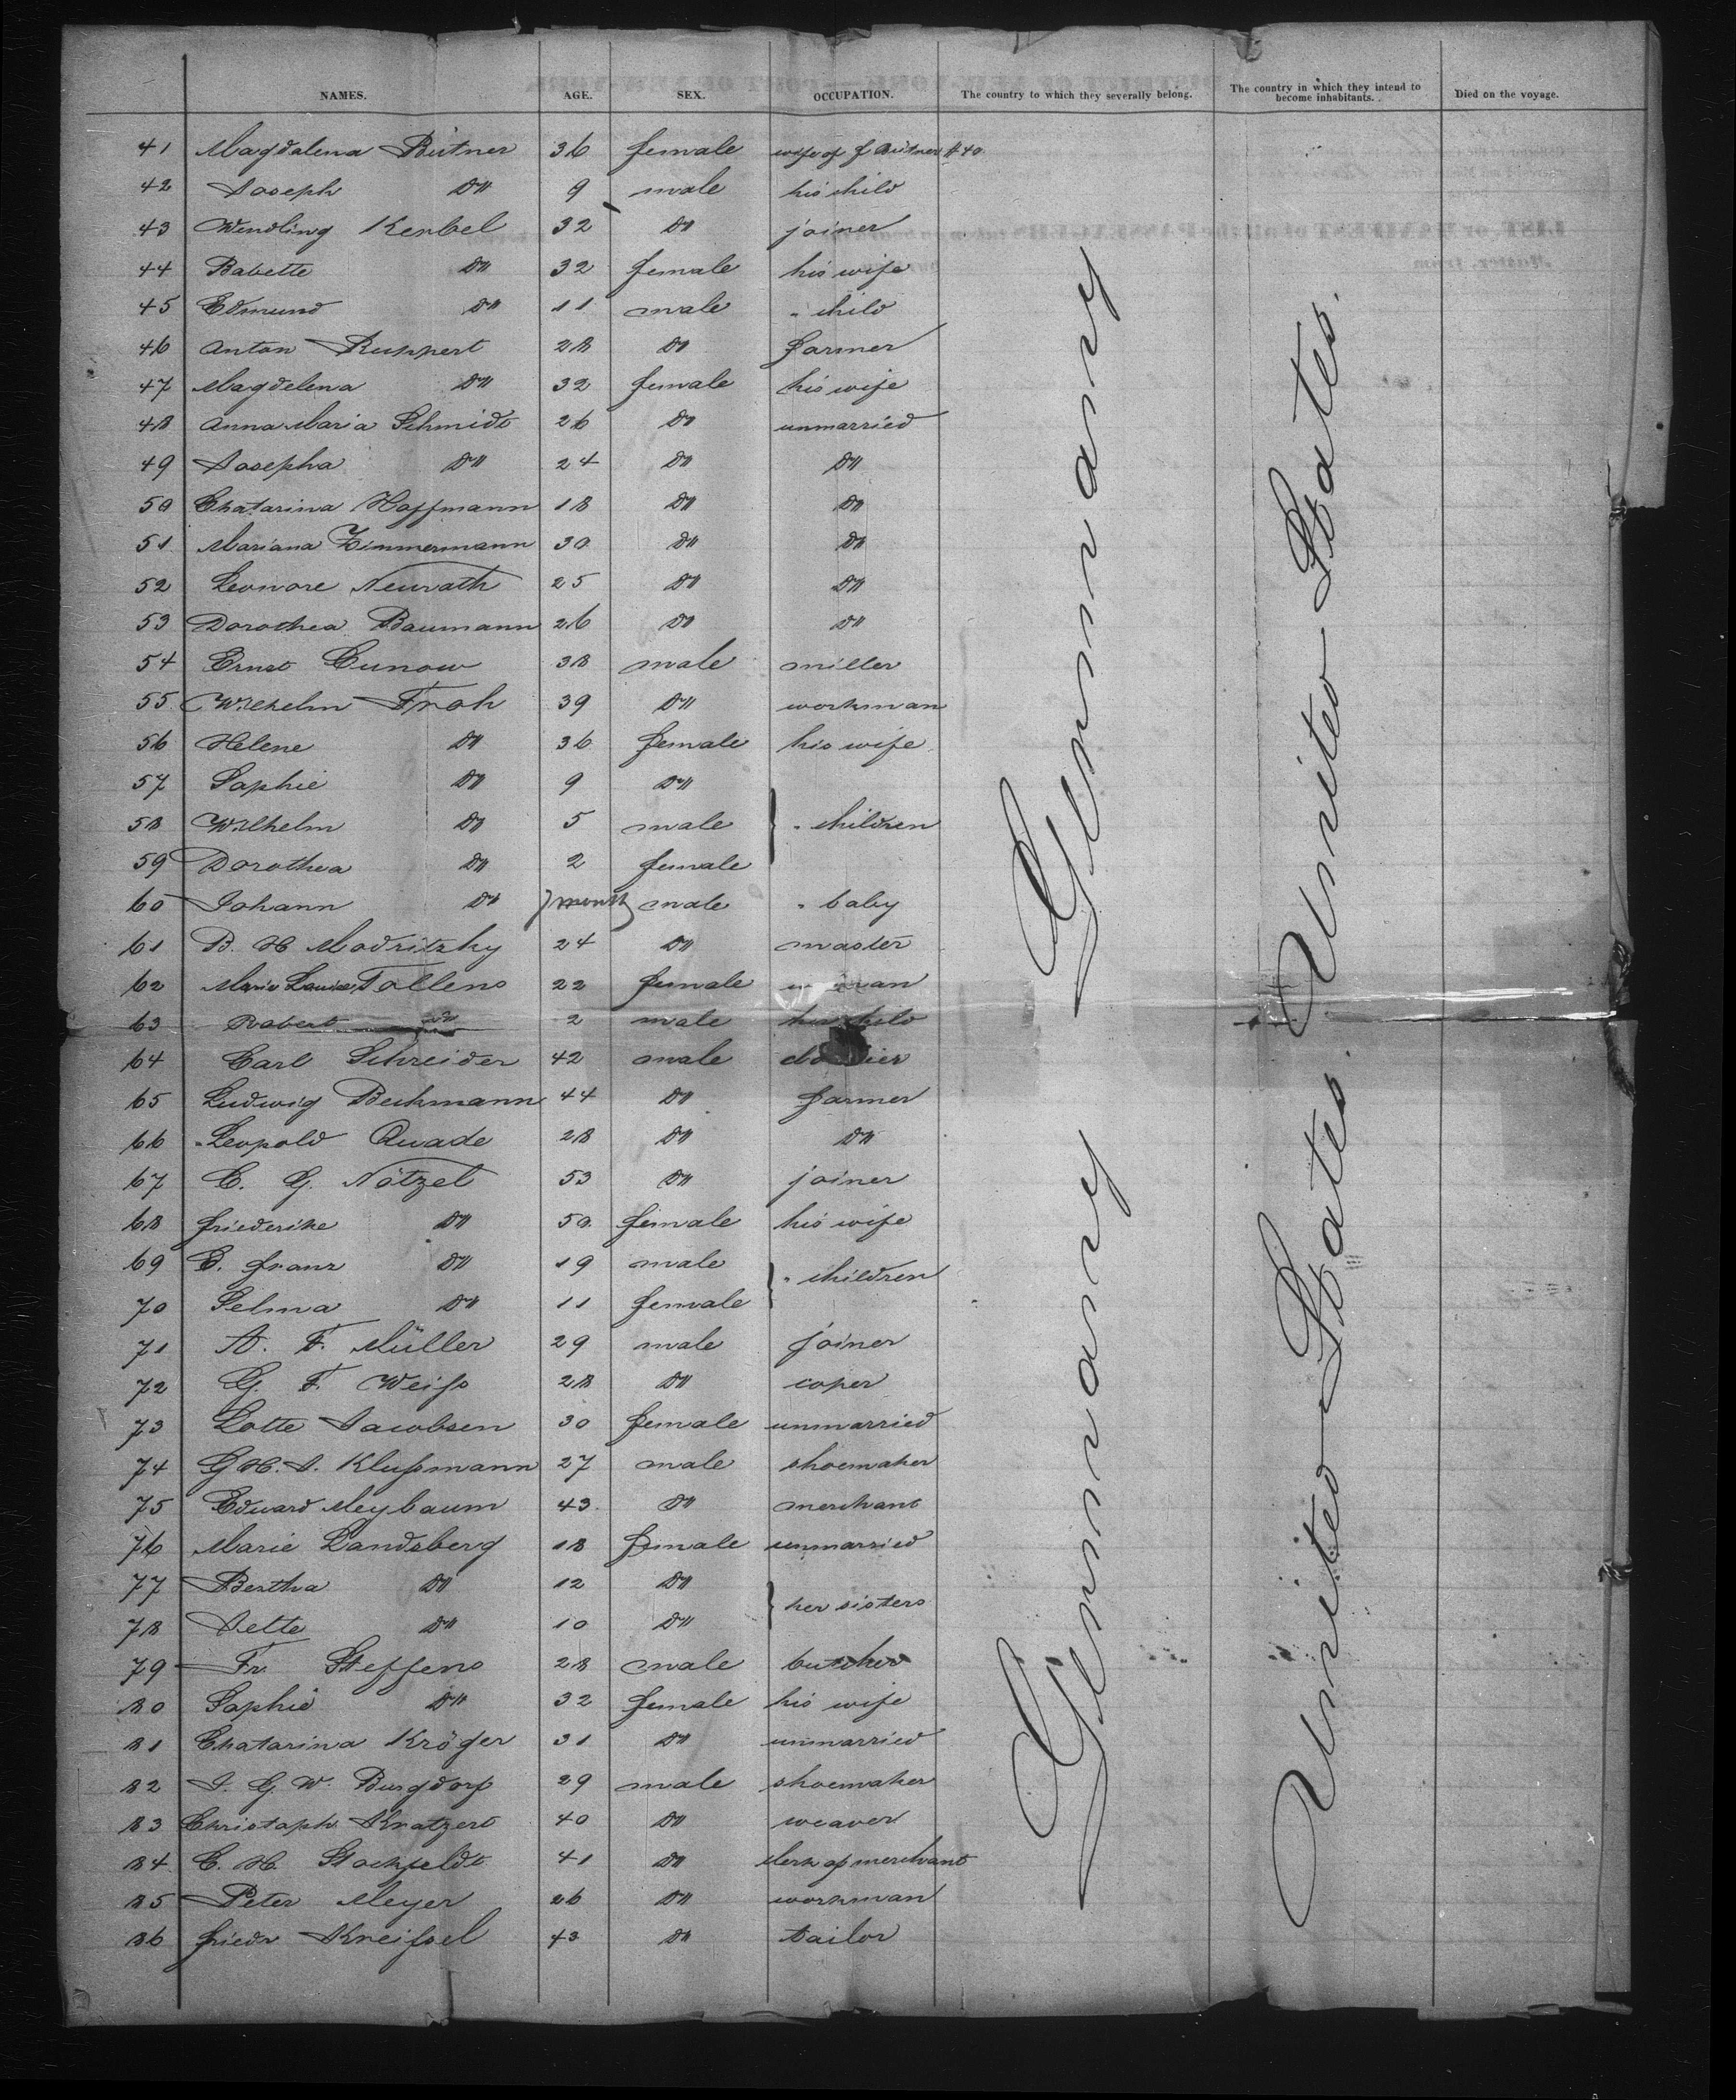 NAMES. AGE. SEX. OCCUPATION. The country to which they severally belong. The country in which they intend to become inhabitants. Died on the voyage.
41 Magdalena Bütner 36 female wife of J Bütner # 40
42 Joseph Do 9 male his child
43 Wendling Kerbel 32 Do joiner
44 Babette Do 32 female his wife
45 Edmund Do 11 male " child
46 Anton Ruppert 28 Do farmer
47 Magdelena Do 32 female his wife
48 Anna Maria Schmidt 26 Do unmarried
49 Josepha Do 24 Do Do
50 Chatarina Hoffmann 18 Do Do
51 Mariana Zimmermann 30 Do Do
52 Leonore Neurath 25 Do Do
53 Dorothea Baumann 26 Do Do
54 Ernst Cunow 38 male miller
55 Wilhelm Froh 39 Do workman
56 Helene Do 36 female his wife
57 Sophie Do 9 Do
58 Wilhelm Do 5 male " children
59 Dorothea Do 2 female
60 Johann Do 7 month male " baby
61 B. H Modritzky 24 Do master
62 Marie Louise Tollens 22 female
63 Robert Do 2 male her child
64 Carl Schreider 42 male
65 Ludwig Beckmann 44 Do farmer
66 Leopold Quade 28 Do Do
67 C. G. Nötzel 53 Do joiner
68 Friederike Do 50 female his wife
69 C. Franz Do 19 male " children
70 Selma Do 11 female
71 A. F. Müller 29 male joiner
72 G. F. Weiss 28 Do coper
73 Lotte Jacobsen 30 female unmarried
74 G H. J. Klussmann 27 male shoemaker
75 Eduard Meybaum 43 Do merchant
76 Marie Landsberg 18 female unmarried
77 Bertha Do 12 Do her sisters
78 Jette Do 10 Do
79 Fr. Steffens 28 male butcher
80 Sophie Do 32 female his wife
81 Chatarina Kröger 31 Do unmarried
82 J. G. W. Burgdorf 29 male shoemaker
83 Christoph Knatzert 40 Do weaver
84 C. H. Stockfeldt 41 Do clerk of merchant
85 Peter Meyer 26 Do workman
86 Friedr Kneissel 43 Do tailor
Germany
Germany
United States.
United States.